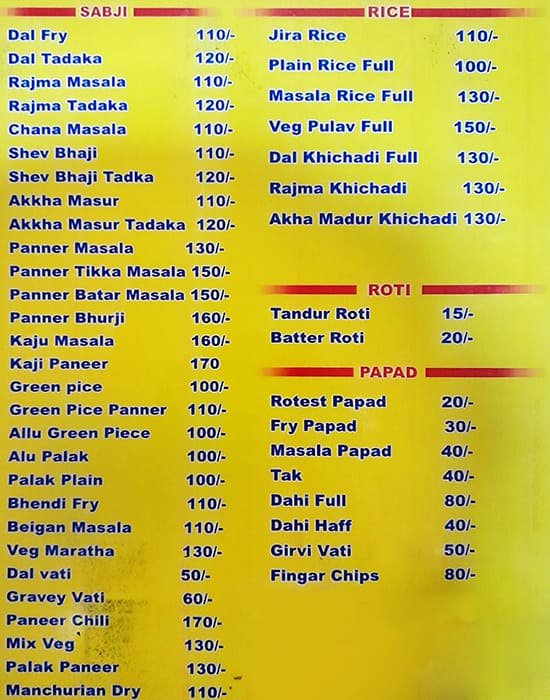 SABJI
Dal Fry 110/-
Dal Tadaka 120/-
Rajma Masala 110/-
Rajma Tadaka 120/-
Chana Masala 110/-
Shev Bhaji 110/-
Shev Bhaji Tadka 120/-
Akkha Masur 110/-
Akkha Masur Tadaka 120/-
Panner Masala 130/-
Panner Tikka Masala 150/-
Panner Batar Masala 150/-
Panner Bhurji 160/-
Kaju Masala 160/-
Kaji Paneer 170
Green pice 100/-
Green Pice Panner 110/-
Allu Green Piece 100/-
Alu Palak 100/-
Palak Plain 100/-
Bhendi Fry 110/-
Beigan Masala 110/-
Veg Maratha 130/-
Dal vati 50/-
Gravey Vati 60/-
Paneer Chili 170/-
Mix Veg 130/-
Palak Paneer 130/-
Manchurian Dry 110/-
RICE
Jira Rice 110/-
Plain Rice Full 100/-
Masala Rice Full 130/-
Veg Pulav Full 150/-
Dal Khichadi Full 130/-
Rajma Khichadi 130/-
Akha Madur Khichadi 130/-
ROTI
Tandur Roti 15/-
Batter Roti 20/-
PAPAD
Rotest Papad 20/-
Fry Papad 30/-
Masala Papad 40/-
Tak 40/-
Dahi Full 80/-
Dahi Haff 40/-
Girvi Vati 50/-
Fingar Chips 80/-